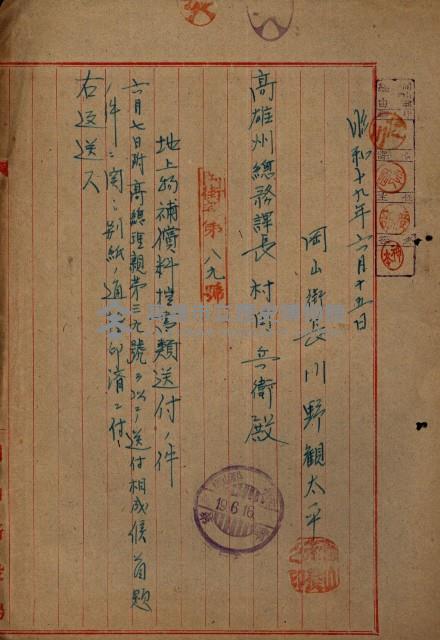 昭和十九年六月十五日
岡山街長川野觀太平
高雄州總務課長 村田兵衛殿
第八九號
地上物補償料 書類送付ノ件
六月七日附高總理親第三九號ヲ以テ送付相成候首題
ノ件ニ関シ別紙ノ通 印濟ニ付
右返送ス
19.6.16